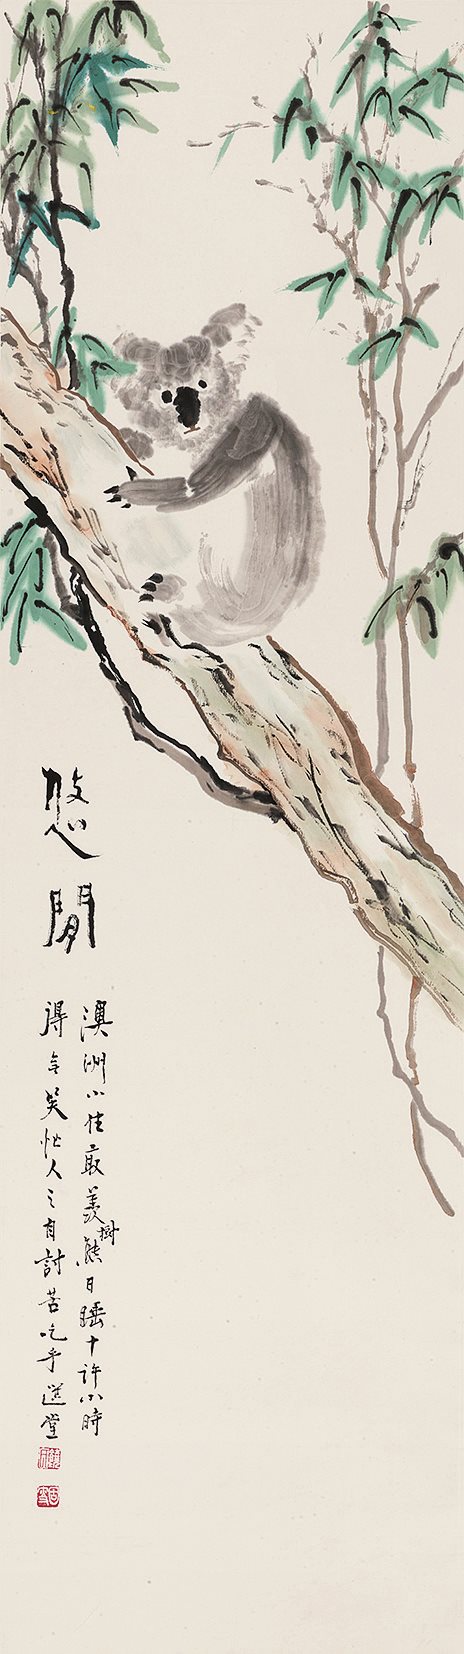 悠閒
澳洲小住最羨樹熊日睡十許小時
得笑忙人之自討苦吃乎 選堂